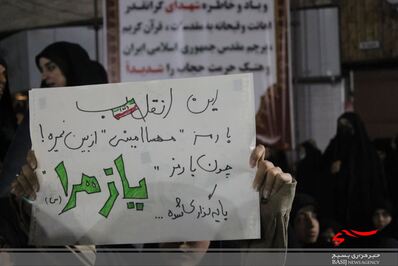 و یاد و خاطره شهدای گرانقدر
اهانت وقیحانه به مقدسات، قرآن کریم
پرچم مقدس جمهوری اسلامی ایران
و هتک حرمت حجاب را شدیداً
این انقلاب
با رمز "مهسا امینی" از بین نمیره!
چون با رمز "یا زهرا (س)"
پایه گذاری شده...
خبرگزاری بسیج
BASIJ NEWS AGENCY